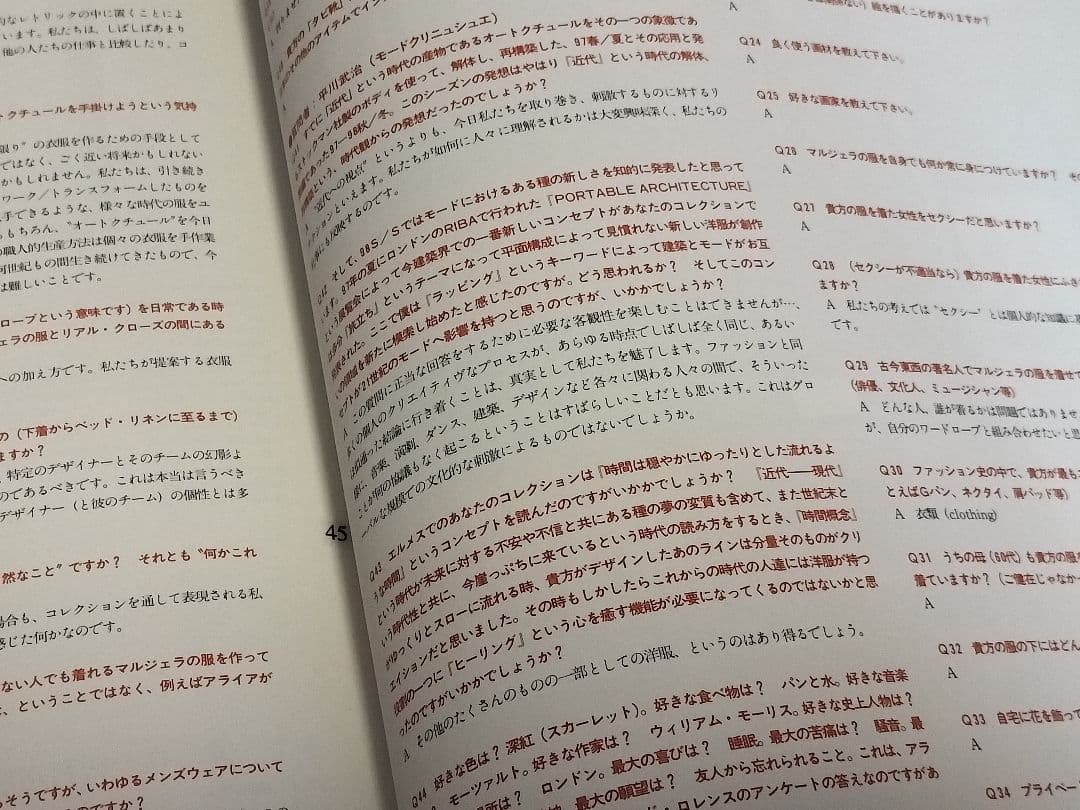 的なレトリックの中に置くことによ
います。私たちは、しばしばあまり
他の人たちの仕事と比較したり、ヨ
トクチュールを手掛けようという気持
限り”の衣服を作るための手段として
ではなく、ごく近い将来かもしれない
かもしれません。私たちは、引き続き
ワーク／トランスフォームしたものを
手できるような、様々な時代の服をユ
もちろん、“オートクチュール”を今日
の職人的生産方法は個々の衣服を手作業
何世紀もの間生き続けてきたもので、今
は難しいことです。
ローブという意味です）を日常である時
ェラの服とリアル・クローズの間にある
への加え方です。私たちが提案する衣服
の（下着からベッド・リネンに至るまで）
ますか？
特定のデザイナーとそのチームの幻影よ
のであるべきです。これは本当は言うべき
デザイナー（と彼のチーム）の個性とは多
然なこと”ですか？　それとも“何かこれ
場合も、コレクションを通して表現される私
感じた何かなのです。
ない人でも着れるマルジェラの服を作って
、ということではなく、例えばアライアが
そうですが、いわゆるメンズウェアについて
のですか？
45
貴方の「タビ靴」
その他のアイテムでイン
質問者：平川武治（モードクリニュシュエ）
すでに『近代』という時代の産物であるオートクチュールをその一つの象徴であ
ストックマン社製のボディを使って、解体し、再構築した、97春／夏とその応用と発
展であった97―98秋／冬。このシーズンの発想はやはり『近代』という時代の解体、
構築という、時代観からの発想だったのでしょうか？
“近代への視点”というよりも、今日私たちを取り巻き、刺激するものに対するリ
アクションといえます。私たちが如何に人々に理解されるかは大変興味深く、私たちの
Q42　そして、98S／Sではモードにおけるある種の新しさを知的に発表したと思って
ます。97年の夏にロンドンのRIBAで行われた『PORTABLE ARCHITECTURE』
という展覧会によって今建築界での一番新しいコンセプトがあなたのコレクションで
は多分『旅立ち』というテーマになって平面構成によって見慣れない新しい洋服が創作
発表された。ここで僕は『ラッピング』というキーワードによって建築とモードがお互
いの領域を新たに模索し始めたと感じたのですが。どう思われるか？　そしてこのコン
セプトが21世紀のモードへ影響を持つと思うのですが、いかがでしょうか？
A　この質問に正当な回答をするために必要な客観性を楽しむことはできませんが…、
多くの個人のクリエイティヴなプロセスが、あらゆる時点でしばしば全く同じ、あるい
は似通った結論に行き着くことは、真実として私たちを魅了します。ファッションと同
様に、音楽、演劇、ダンス、建築、デザインなど各々に関わる人々の間で、そういった
ことが何の協議もなく起こるということはすばらしいことだとも思います。これはグロ
ーバルな規模での文化的な刺激によるものではないでしょうか。
Q43　エルメスでのあなたのコレクションは『時間は穏やかにゆったりとした流れるよ
うな時間』というコンセプトを読んだのですがいかかでしょうか？　『近代――現代』
という時代が未来に対する不安や不信と共にある種の夢の変質も含めて、また世紀末と
いう時代性と共に、今崖っぷちに来ているという時代の読み方をするとき、『時間概念』
がゆっくりとスローに流れる時、貴方がデザインしたあのラインは分量そのものがクリ
エイションだと思いました。その時もしかしたらこれからの時代の人達には洋服が持つ
役割の一つに『ヒーリング』という心を癒す機能が必要になってくるのではないかと思
ったのですがいかかでしょうか？
A　その他のたくさんのものの一部としての洋服、というのはあり得るでしょう。
Q44　好きな色は？　深紅（スカーレット）。好きな食べ物は？　パンと水。好きな音楽
は？　モーツァルト。好きな作家は？　ウィリアム・モーリス。好きな史上人物は？
場所は？　ロンドン。最大の喜びは？　睡眠。最大の苦痛は？　騒音。最
最大の願望は？　友人から忘れられること。これは、アラ
ロレンスのアンケートの答えなのですがあ
絵を描くことがありますか？
Q24　良く使う画材を教えて下さい。
A
Q25　好きな画家を教えて下さい。
A
Q26　マルジェラの服を自身でも何か常に身につけていますか？　そ
A
Q27　貴方の服を着た女性をセクシーだと思いますか？
A
Q28　（セクシーが不適当なら）貴方の服を着た女性にふさ
ますか？
A　私たちの考えでは“セクシー”とは個人的な知識に基
です。
Q29　古今東西の著名人でマルジェラの服を着せて
（俳優、文化人、ミュージシャン等）
A　どんな人、誰が着るかは問題ではありませ
が、自分のワードローブと組み合わせたいと思
Q30　ファッション史の中で、貴方が最も
とえばGパン、ネクタイ、肩パッド等）
A　衣類（clothing）
Q31　うちの母（60代）も貴方の服
着ていますか？（ご健在じゃなか
A
Q32　貴方の服の下にはどん
A
Q33　自宅に花を飾って
A
Q34　プライベー